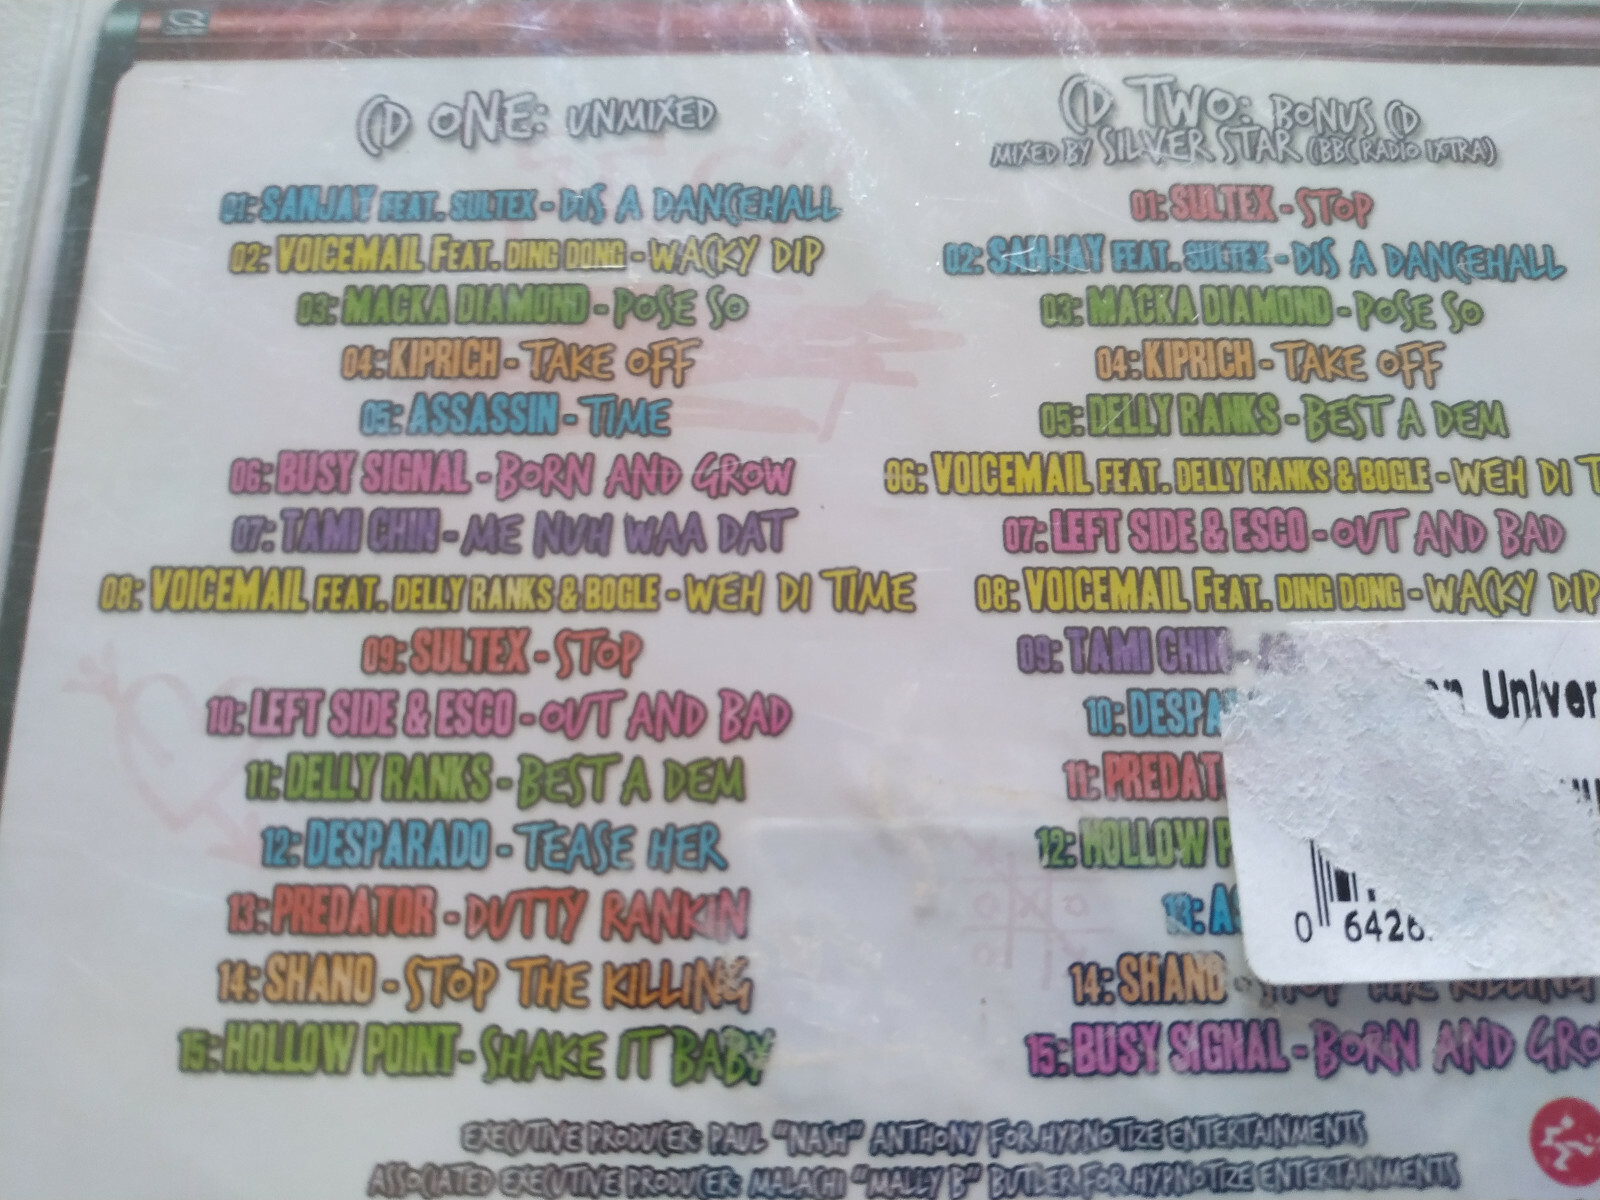 CD ONE: UNMIXED
01: SANJAY FEAT. SULTEX - DIS A DANCEHALL
02: VOICEMAIL FEAT. DING DONG - WACKY DIP
03: MACKA DIAMOND - POSE SO
04: KIPRICH - TAKE OFF
05: ASSASSIN - TIME
06: BUSY SIGNAL - BORN AND GROW
07: TAMI CHIN - ME NUH WAA DAT
08: VOICEMAIL FEAT. DELLY RANKS & BOGLE - WEH DI TIME
09: SULTEX - STOP
10: LEFT SIDE & ESCO - OUT AND BAD
11: DELLY RANKS - BEST A DEM
12: DESPARADO - TEASE HER
13: PREDATOR - DUTTY RANKIN
14: SHANO - STOP THE KILLING
15: HOLLOW POINT - SHAKE IT BABY
CD TWO: BONUS CD
MIXED BY SILVER STAR (BBC RADIO 1XTRA)
01: SULTEX - STOP
02: SANJAY FEAT. SULTEX - DIS A DANCEHALL
03: MACKA DIAMOND - POSE SO
04: KIPRICH - TAKE OFF
05: DELLY RANKS - BEST A DEM
06: VOICEMAIL FEAT. DELLY RANKS & BOGLE - WEH DI T
07: LEFT SIDE & ESCO - OUT AND BAD
08: VOICEMAIL FEAT. DING DONG - WACKY DIP
09: TAMI CHIN -
10: DESPA
11: PREDAT
12: HOLLOW P
13: AS
14: SHANO - STOP THE KILLING
15: BUSY SIGNAL - BORN AND GRO
Univer
0 6426
EXECUTIVE PRODUCER: PAUL "NASH" ANTHONY FOR HYPNOTIZE ENTERTAINMENTS
ASSOCIATED EXECUTIVE PRODUCER: MALACHI "MALLY B" BUTLER FOR HYPNOTIZE ENTERTAINMENTS